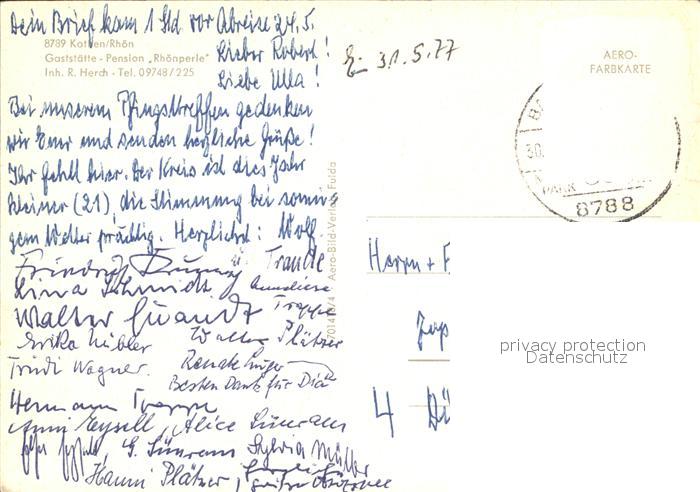 Dein Brief kam 1 Std vor Abreise 24.5.
8789 Kothen/Rhön
Gaststätte - Pension „Rhönperle"
Inh. R. Herch - Tel. 09748/225
Lieber Robert!
Liebe Ulla!
Bei unserem Pfingsttreffen gedenken
wir Eurer und senden herzliche Grüße!
Ihr fehlt hier. Der Kreis ist dies Jahr
kleiner (21), die Stimmung bei sonnig
gem Wetter prächtig. Herzlichst: Wolf
Friedrich u. Traudle
Lina Schmidt Anneliese
Walter Quandt Trappe
Erika Walter Plätzer
Trudi Wagner. Renate
Besten Dank für Dia
Hermann Trappe
Anni Alice
G. Sylvia Müller
Hanni Plätzer,
31.5.77
AERO-
FARBKARTE
30.
8788
Aero-Bild-Verlag Fulda
Herrn + F
4 Dü
privacy protection
Datenschutz